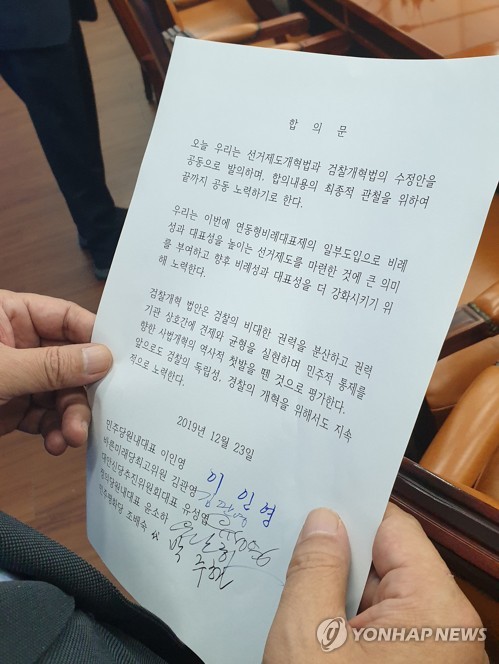 합 의 문
오늘 우리는 선거제도개혁법과 검찰개혁법의 수정안을
공동으로 발의하며, 합의내용의 최종적 관철을 위하여
끝까지 공동 노력하기로 한다.
우리는 이번에 연동형비례대표제의 일부도입으로 비례
성과 대표성을 높이는 선거제도를 마련한 것에 큰 의미
를 부여하고 향후 비례성과 대표성을 더 강화시키기 위
해 노력한다.
검찰개혁 법안은 검찰의 비대한 권력을 분산하고 권력
기관 상호간에 견제와 균형을 실현하며 민주적 통제를
향한 사법개혁의 역사적 첫발을 뗀 것으로 평가한다.
앞으로도 검찰의 독립성, 경찰의 개혁을 위해서도 지속
적으로 노력한다.
2019년 12월 23일
민주당원내대표 이인영 이 인 영
바른미래당최고위원 김관영 김관영
대안신당추진위원회대표 유성엽
정의당원내대표 윤소하
민주평화당 조배숙 박주현
YONHAP NEWS